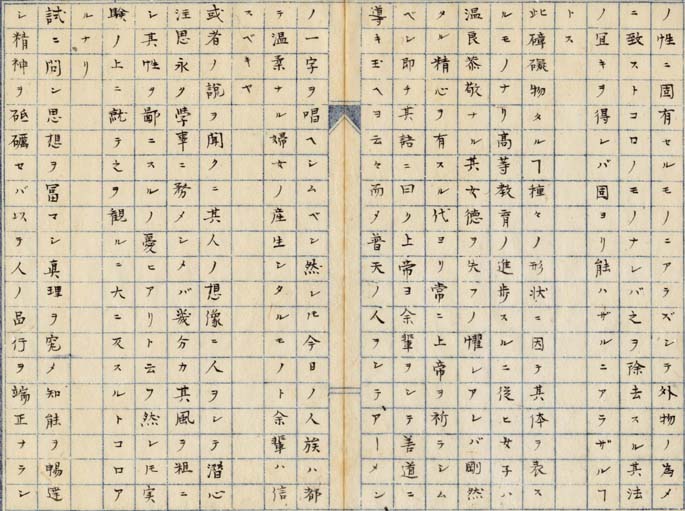 ノ性ニ固有セルモノニアラズシテ外物ノ為メ
ニ致ストコロノモノナレバ之ヲ除去スル其法
ノ宜キヲ得レバ固ヨリ能ハザルニアラザルヿ
トス
此障礙物タルヿ種々ノ形状ニ因テ其体ヲ表ス
ルモノナリ高等教育ノ進歩スルニ従ヒ女子ハ
温良恭敬ナル其女徳ヲ失フノ懼レアレバ剛然
タル精心ヲ有スル代ヨリ常ニ上帝ヲ祈ラシム
ベル即チ其語ニ曰ク上帝ヨ余輩ヲシテ善道ニ
導キ玉ヘヨ云々而メ普天ノ人ヲシテアーメン
ノ一字ヲ唱ヘシムベシ然レ𪜈今日ノ人族ハ都
テ温柔ナル婦女ノ産生シタルモノト余輩ハ信
スベキヤ
或者ノ説ヲ聞クニ其人ノ想像ニ人ヲシテ潜心
注思永ク学事ニ務メシメバ幾分カ其風ヲ粗ニ
シ其性ヲ鄙ニスルノ憂ヒアリト云フ然レ𪜈実
験ノ上ニ就テ之ヲ観ルニ大ニ反スルトコロア
ルナリ
試ニ問ン思想ヲ冨マシ真理ヲ究メ知能ヲ暢達
シ精神ヲ砥礪セバ以ヲ人ノ品行ヲ端正ナラシ